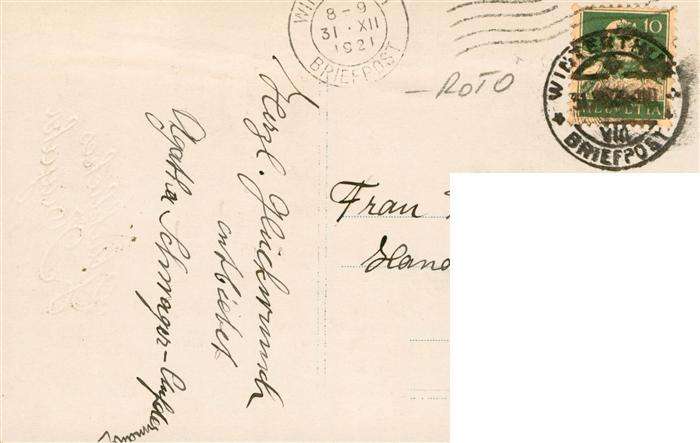 WI
8-9
31. XII
1921
BRIEFPOST
10
HELVETIA
WINTERTHUR
VIII
BRIEFPOST
- ROTO
Herzl. Glückwunsch
entbietet
Agatha Schwager-
Frau
Hand